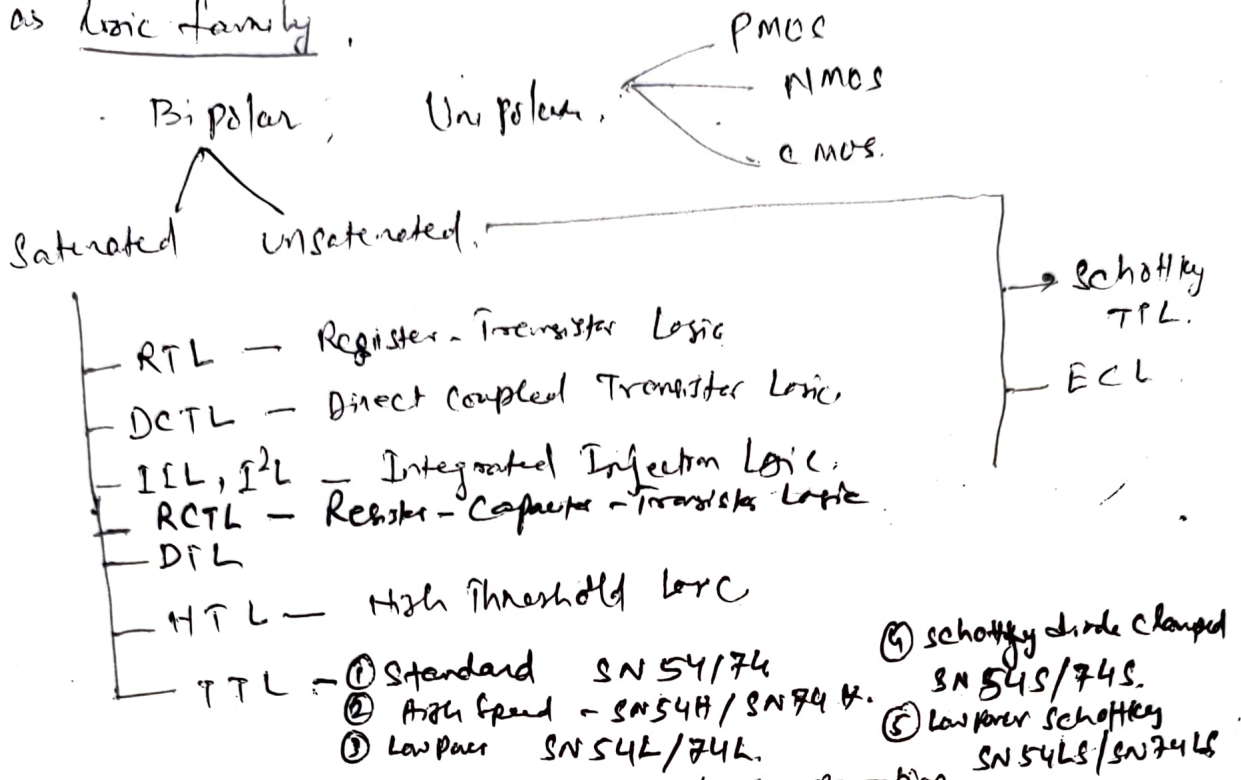 as Logic family.
PMOS
NMOS
CMOS.
Bipolar, Unipolar.
Saturated Unsaturated.
Schottky
TTL.
ECL
RTL — Register-Transistor Logic
DCTL — Direct Coupled Transistor Logic.
IIL, I²L — Integrated Injection Logic.
RCTL — Resistor-Capacitor-Transistor Logic
DTL
HTL — High Threshold Logic
TTL - ① Standard SN54/74
② High Speed - SN54H/SN74H.
③ Low Power SN54L/74L.
④ Schottky diode Clamped
SN54S/74S.
⑤ Low power Schottky
SN54LS/SN74LS